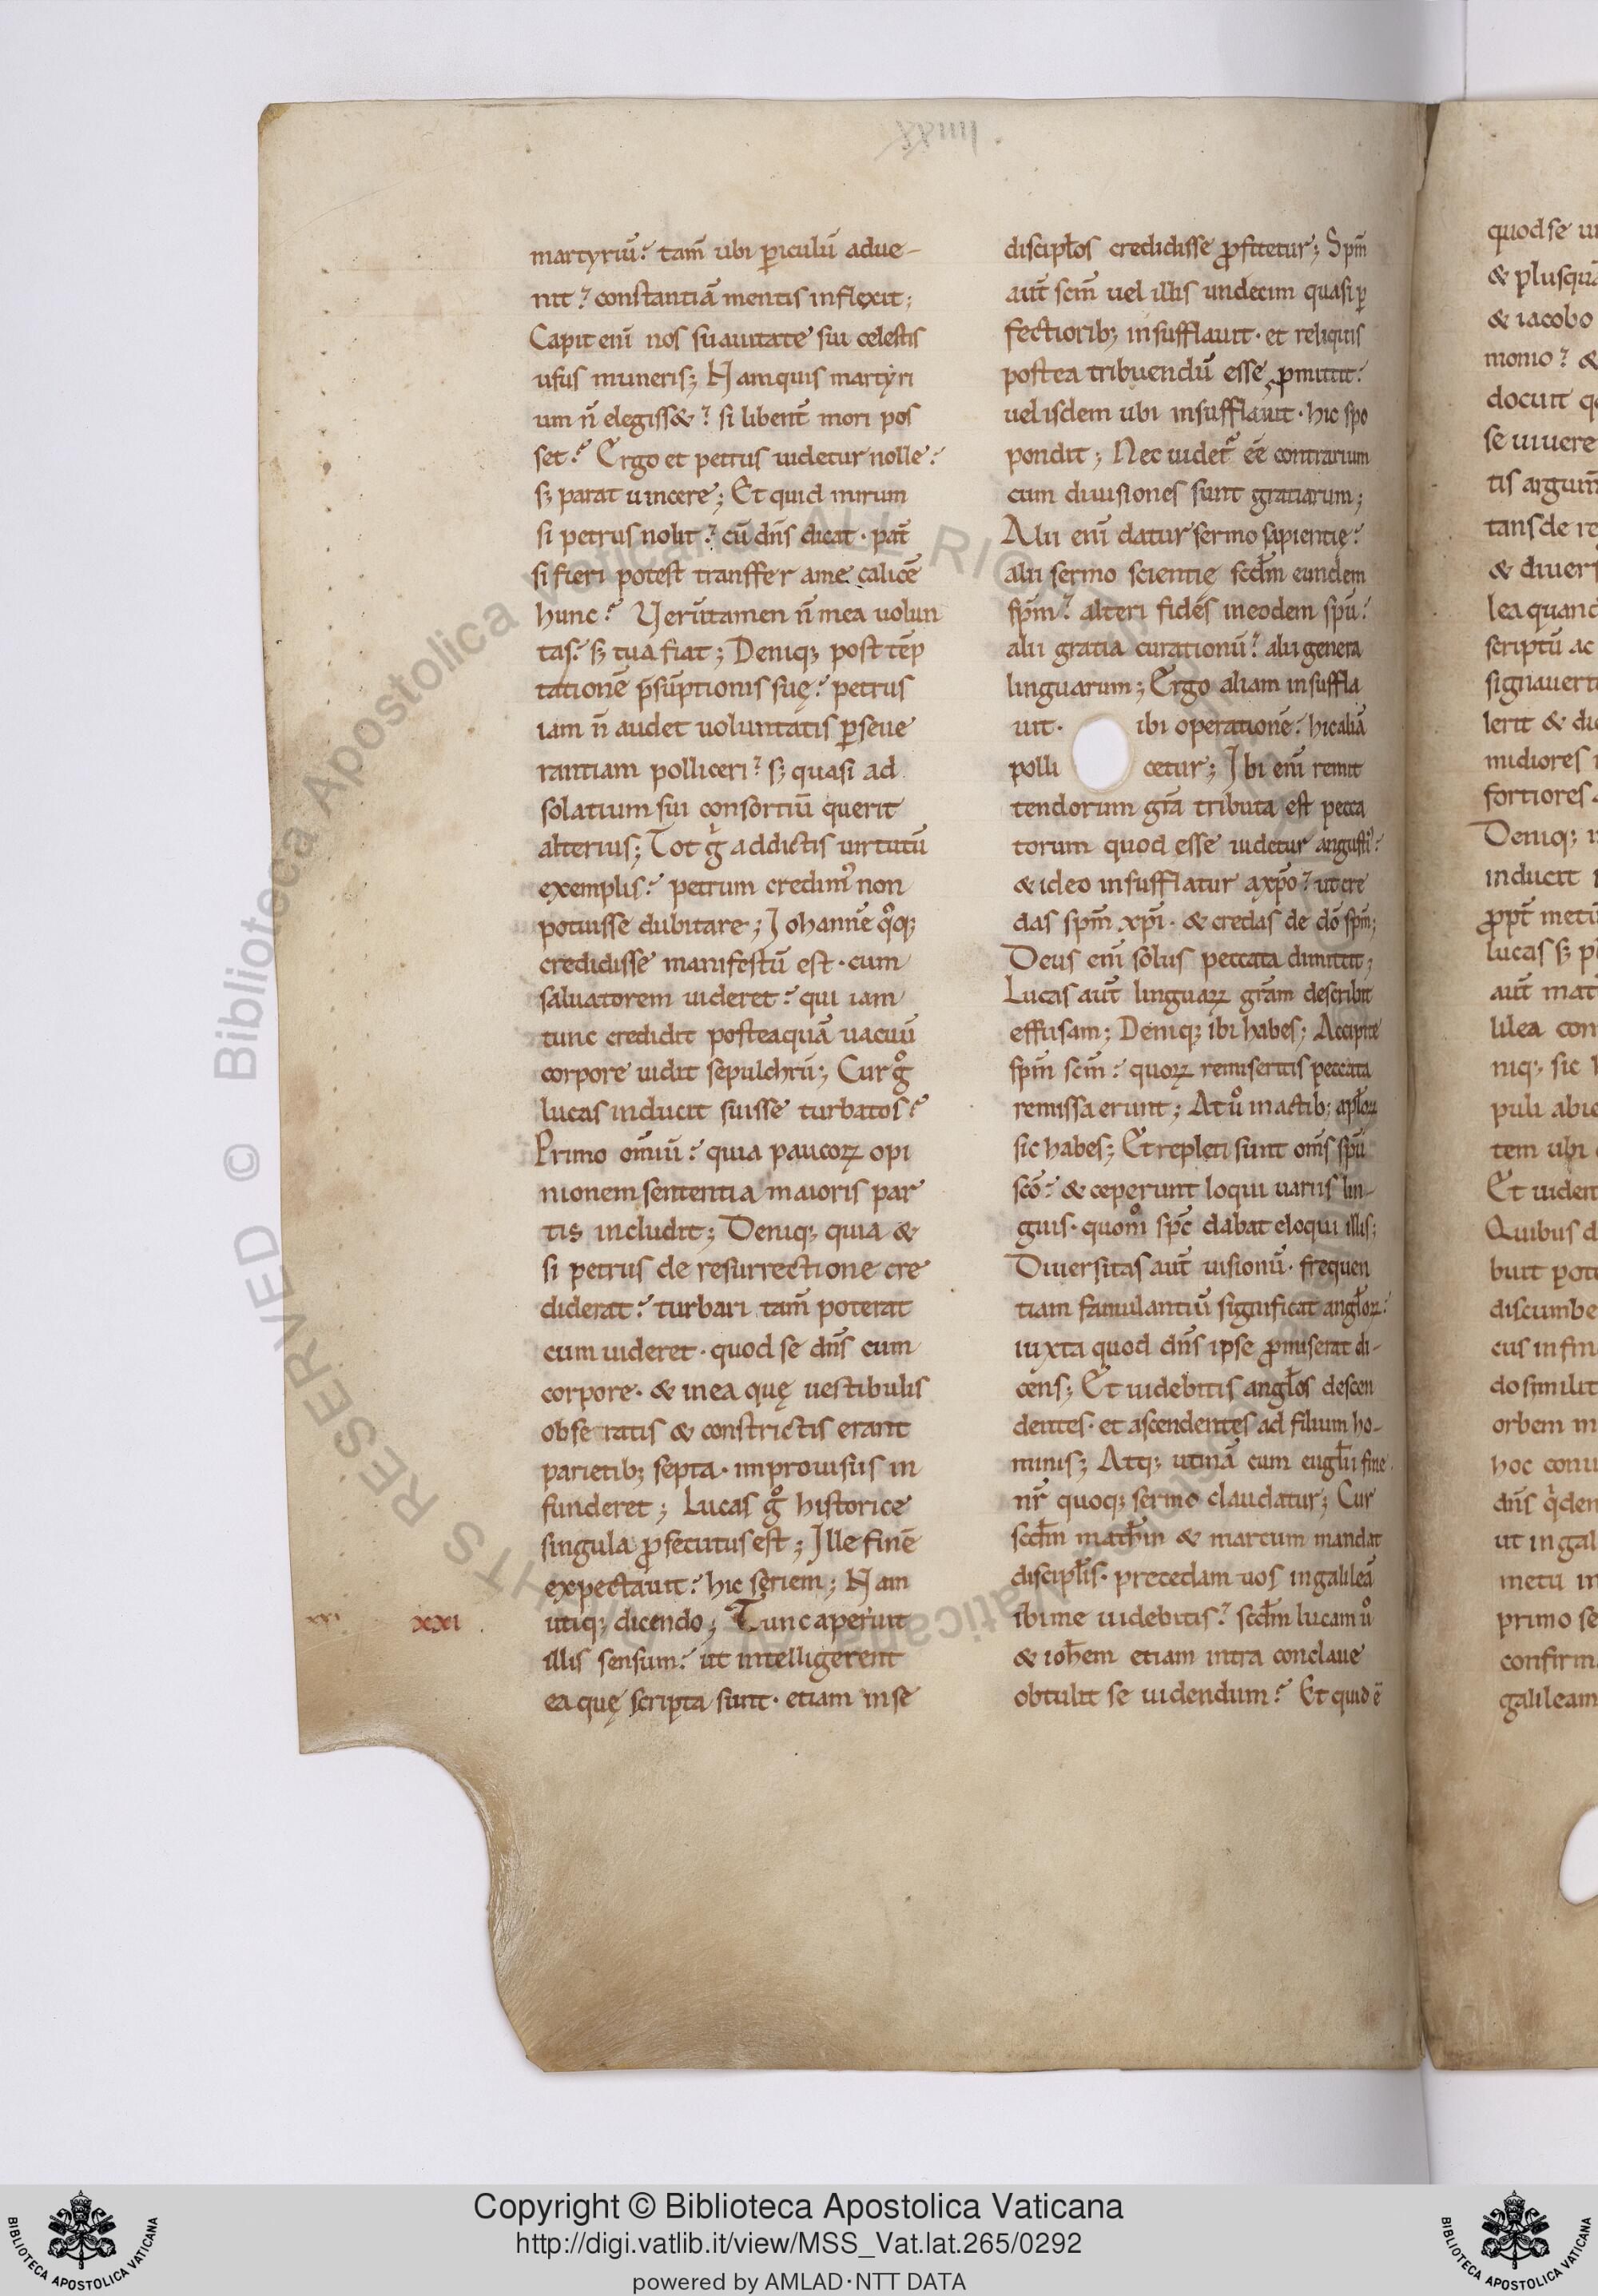 xxiiii
martyriū? tam̄ ubi ꝑiculū adue-
nit? constantiā mentis inflexit;
Capit eni nos suauitate sui celestis
usus muneris; Nam quis martyri
um n̄ elegiss&? si libent̄ mori pos
set? Ergo et petrus uidetur nolle?
sꝫ parat uincere; Et quid mirum
si petrus nolit? cū dn̄s dicat · pat̄
si fieri potest transfer a me calicē
hunc? Verūtamen n̄ mea uolun
tas? sꝫ tua fiat; Deniqꝫ post tēp
tationē p̄sūptionis suę? petrus
iam n̄ audet uoluntatis ꝑseue
rantiam polliceri? sꝫ quasi ad
solatium sui consortiū querit
alterius; Tot gͥ addictis uirtutū
exemplis? petrum credimꝰ non
potuisse dubitare; Iohannē qͦqꝫ
credidisse manifestū est · cum
saluatorem uideret? qui iam
tunc credidit posteaquā uacuū
corpore uidit sepulchrū; Cur gͦ
lucas inducit fuisse turbatos?
Primo om̄iū? quia paucoꝝ opi
nionem sententia maioris par
tis includit; Deniqꝫ quia &
si petrus de resurrectione cre
diderat? turbari tam̄ poterat
cum uideret · quod se dn̄s cum
corpore · & in ea quę uestibulis
obseratis & constrictis erant
parietibꝫ septa · improuisus in
funderet; Lucas gͦ historice
singula ꝓsecutus est; Ille finē
expectauit? hic seriem; Nam
xxi xxi utiqꝫ dicendo; Tunc aperuit
illis sensum? ut intelligerent
ea quę scripta sunt · etiam in se
discipłos credidisse ꝓfitetur; Spm̄
aut̄ scm̄ uel illis undecim quasi ꝑ
fectioribꝫ insufflauit · et reliquis
postea tribuendū esse ꝓmittit?
uel isdem ubi insufflauit · hic spo
pondit; Nec uidet᷑ eē contrarium
cum diuisiones sunt gratiarum;
Alii eni datur sermo sapientię?
alii sermo scientię scdm̄ eundem
spm̄? alteri fides in eodem spū?
alii gratia curationū? alii genera
linguarum; Ergo aliam insuffla
uit · ibi operationē? hic aliā
polli cetur; Ibi eni remit
tendorum gr̄a tributa est pecca
torum quod esse uidetur angustiꝰ?
& ideo insufflatur a xp̄o? ut cre
das spm̄ xpi · & credas de dō spm̄;
Deus eni solus peccata dimittit;
Lucas aut̄ linguaꝝ gr̄am describit
effusam; Deniqꝫ ibi habes; Accipite
spm̄ scm̄? quoꝝ remiseritis peccata
remissa erunt; At uͦ in actibꝫ apłoꝝ
sic habes; Et repleti sunt om̄s spū
scō? & ceperunt loqui uariis lin-
guis · quomͦ spc̄ dabat eloqui illis;
Diuersitas aut̄ uisionū · frequen
tiam famulantiū significat angłoꝝ?
iuxta quod dn̄s ipse ꝓmiserat di-
cens; Et uidebitis angłos descen
dentes · et ascendentes ad filium ho-
minis; Atqꝫ utinā cum eugłii fine
nr̄ quoqꝫ sermo claudatur; Cur
scdm̄ math̄m & marcum mandat
discipłis · precedam uos in galileā
ibi me uidebitis? scdm̄ lucam uͦ
& ioh̄em etiam intra conclaue
obtulit se uidendum? Et quid ē
quod se ui
& plusquā
& iacobo
momo? &
docuit q
se uiuere
tis argum̄
tans de re
& diuers
lea quand
scriptū ac
signauert
lerit & di
midiores
fortiores
Deniqꝫ
inducit
ꝓpt̄ metū
lucas sꝫ p
aut̄ mat
lilea con
niqꝫ sic
puli abie
tem ubi
Et uident
Quibus d
buit pot
discumbe
cus in fin
do similit
orbem m
hoc conu
dn̄s qͥdem
ut in gal
metu in
primo se
confirm
galileam
Copyright © Biblioteca Apostolica Vaticana
http://digi.vatlib.it/view/MSS_Vat.lat.265/0292
powered by AMLAD·NTT DATA
BIBLIOTECA APOSTOLICA VATICANA
BIBLIOTECA APOSTOLICA VATICANA